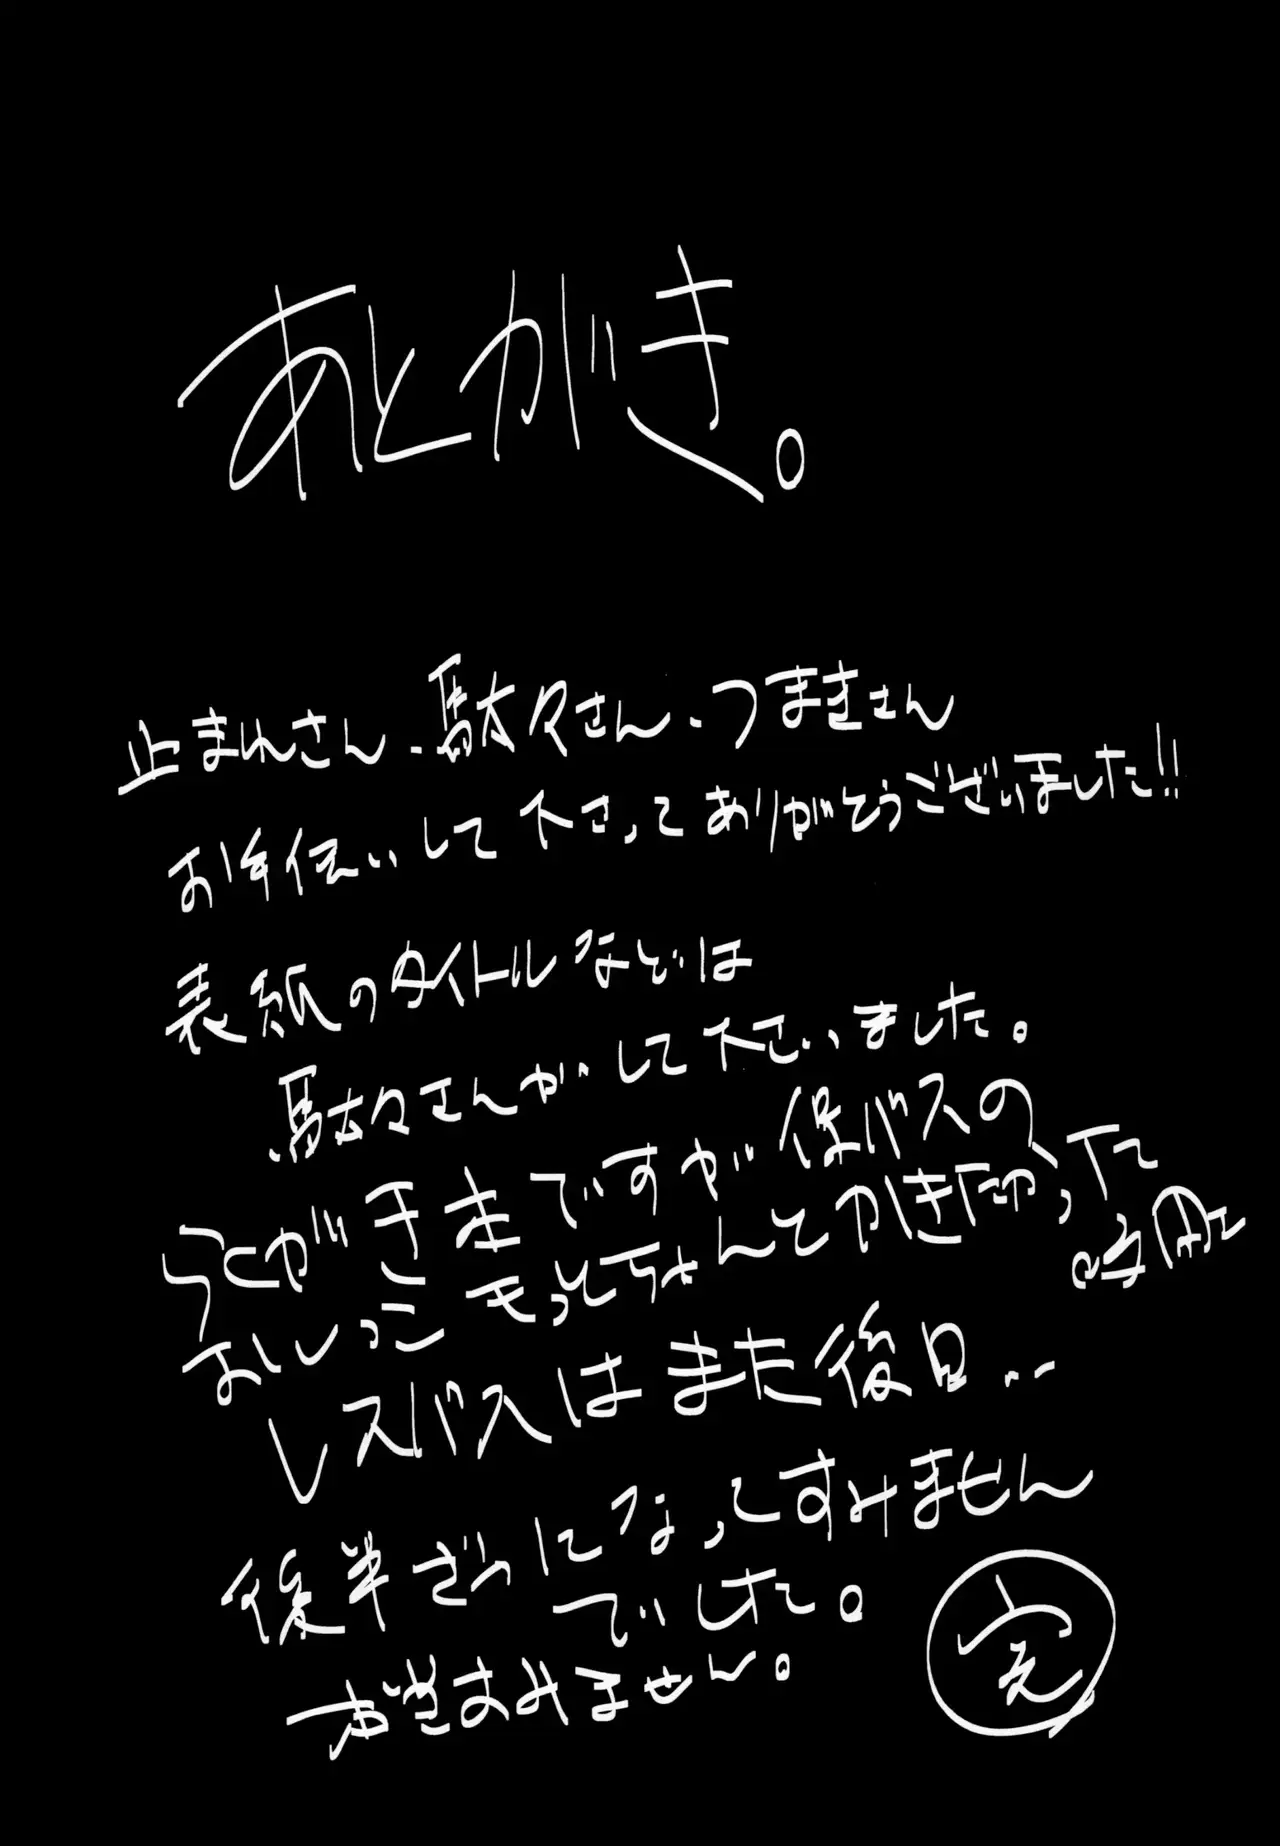 あとがき。
止まれさん、駄々さん、つまきさん
お手伝いして下さってありがとうございました!!
表紙のタイトルなどは
駄々さんがして下さいました。
らくがきまですが保バスの
おしっこもっとちゃんとかきたかった
時間
レズバスはまた後日..
後半ざつになってすみません
でした。
すみません。